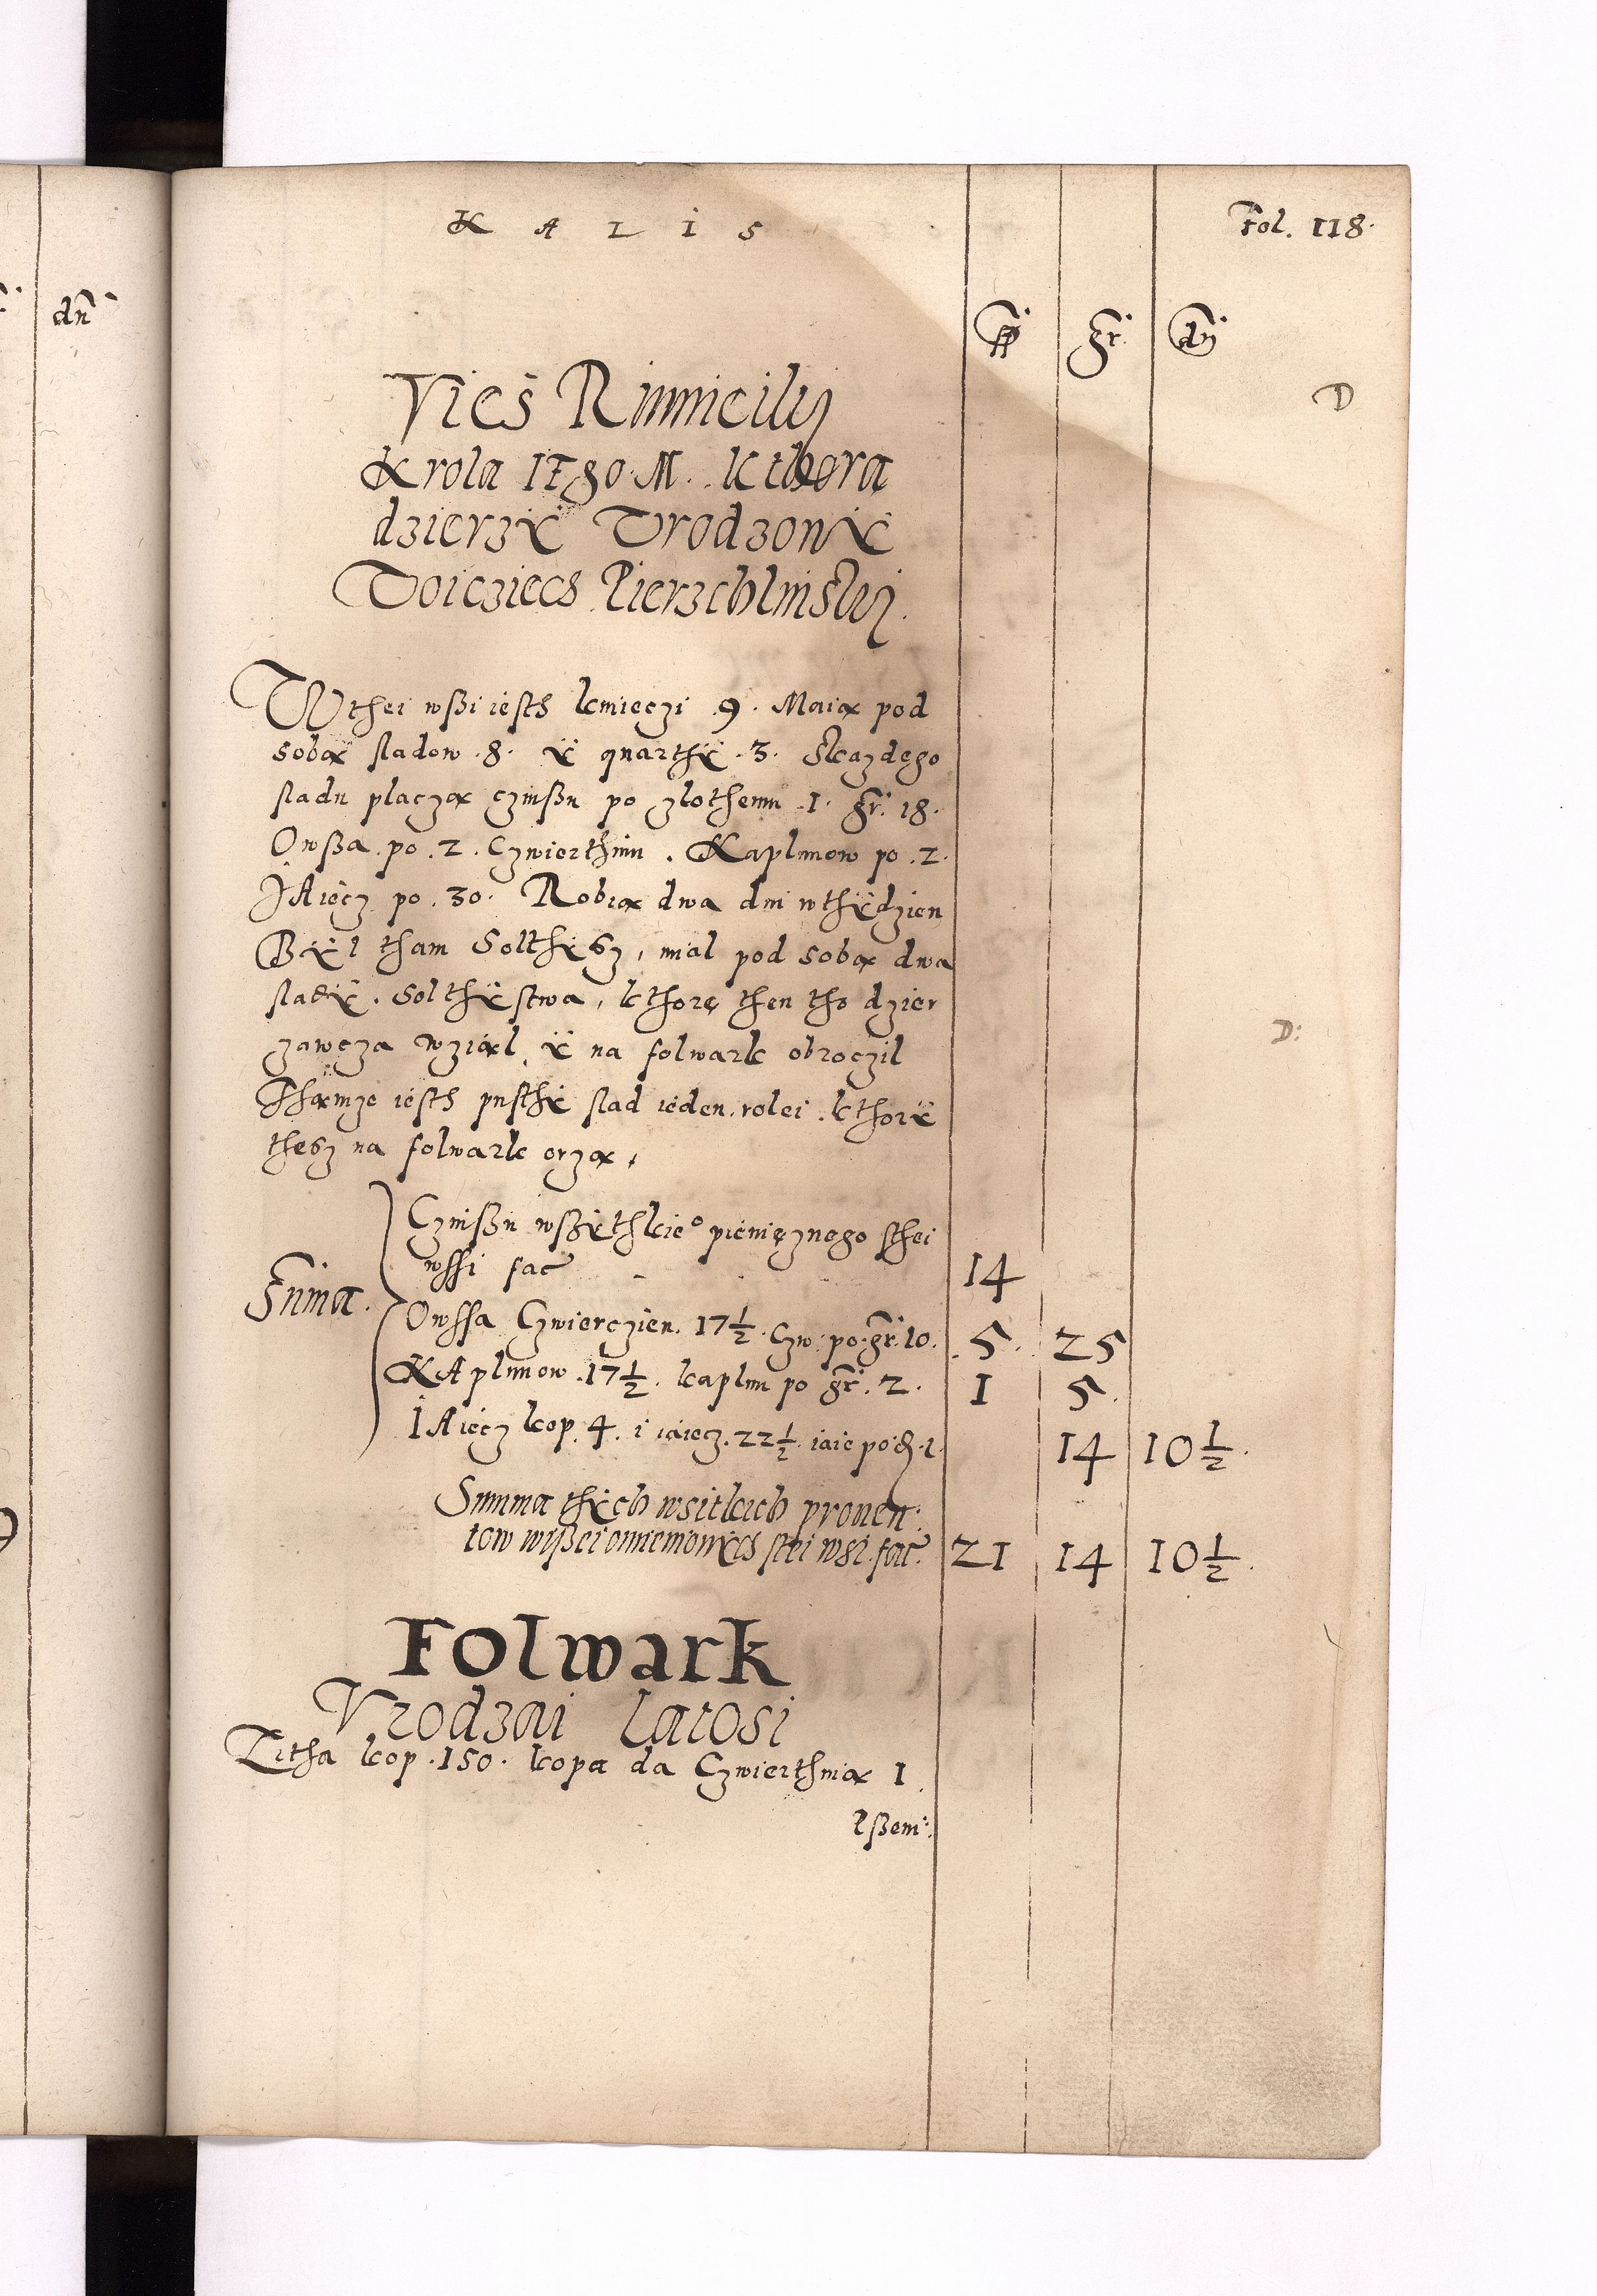 K A L I S
Fol. 118.
dñ
fl gr. dn
D
Vies Rumncilij
Krola IE° M. kthora
dzierzÿ Vrodzonÿ
Voicziech Pierzchlinskij.
W thei wßi iesth kmieczi .9. Maia pod
soba sladow .8. ÿ quarthÿ .3. Skazdego
sladu placza czinßu po zlothemu .1. gr. 18.
Owßa po .2. Czwierthni. Kaplunow po .2.
IAiecz po .30. Robia dwa dni w thÿdzien
Bÿl tham Solthÿsz, mial pod soba dwa
sladÿ. Solthÿstwa, kthore then tho dzier
zawcza wzial, ÿ na folwark obroczil
Thamze iesth pusthÿ slad ieden rolei. kthorÿ
thesz na folwark orza.
Suma.
Czinßu wßÿthkie° pienięznego sthei
wssi fac 14
Owssa Czwierczien. 17½. Czw. po. gr. 10. 5. 25
KAplunow .17½. kaplun po gr. 2. 1 5.
IAiecz kop. 4. i iaiecz. 22½. iaie po d. 1. 14 10½.
Summa thÿch wsitkich prouen:
tow wißei omiemionÿch stei wsi. fac. 21 14 10½.
Folwark
Vrodzai Latosi
Zitha kop .150. kopa da Czwierthnia 1.
D: